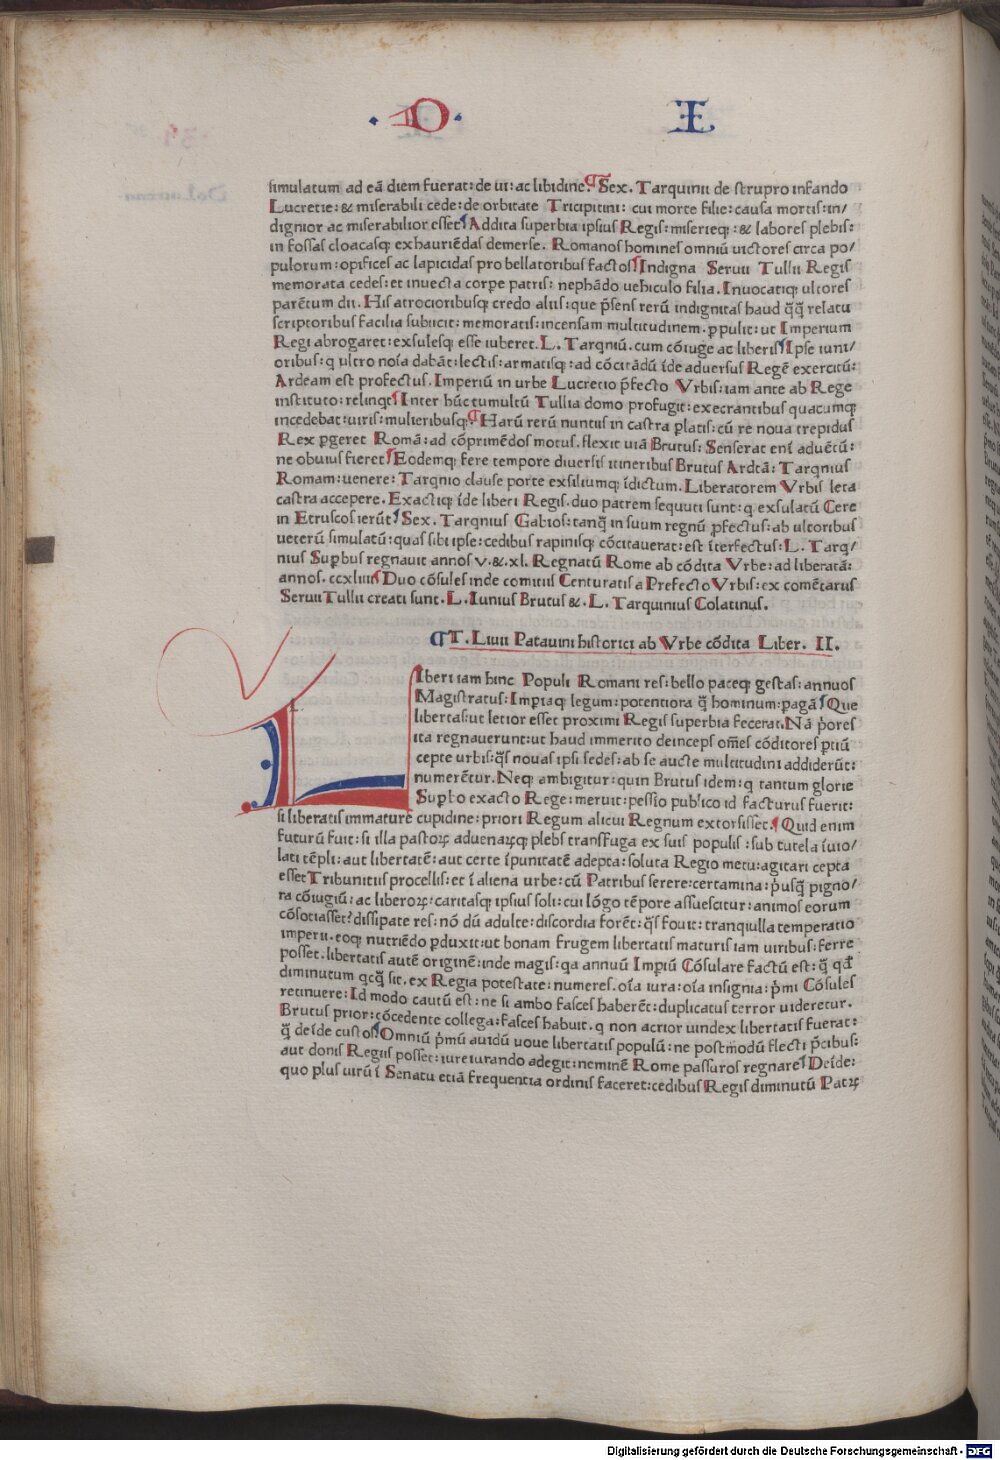 · D · E
simulatum ad eā diem fuerat: de ui: ac libidine ¶ Sex. Tarquinii de strupro infando
Lucretie: & miserabili cede: de orbitate Tricipitini: cui morte filie: causa mortis: in/
dignior ac miserabilior esset ¶ Addita superbia ipsius Regis: miserieq;: & labores plebis:
in fossas cloacasq; exhauriēdas demerse. Romanos homines omniū uictores circa po/
pulorum: opifices ac lapicidas pro bellatoribus factos ¶ Indigna Seruii Tullii Regis
memorata cedes: et inuecta corpe patris: nephādo uehiculo filia. Inuocatiq; ultores
parētum dii. His atrocioribusq; credo aliis: que p̄sens rerū indignitas haud q̄q̄ relatu
scriptoribus facilia subiicit: memoratis: incensam multitudinem. ꝑpulit: ut Imperium
Regi abrogaret: exsulesq; esse iuberet. L. Tarqniū. cum cōiuge ac liberis ¶ Ipse iuni/
oribus: q ultro noīa dabāt: lectis: armatisq;: ad cōcitādū īde aduersus Regē exercitū:
Ardeam est profectus. Imperiū in urbe Lucretio p̄fecto Vrbis: iam ante ab Rege
instituto: relinqt ¶ Inter hūc tumultū Tullia domo profugit: execrantibus quacumq;
incedebat: uiris: mulieribusq; ¶ Harū rerū nuntiis in castra ꝑlatis: cū re noua trepidus
Rex ꝑgeret Romā: ad cōprimēdos motus. flexit uiā Brutus: Senserat enī aduētū:
ne obuius fieret ¶ Eodemq; fere tempore diuersis itineribus Brutus Ardeā: Tarqnius
Romam: uenere: Tarqnio clause porte exsiliumq; īdictum. Liberatorem Vrbis leta
castra accepere. Exactiq; īde liberi Regis. duo patrem sequuti sunt: q exsulatū Cere
in Etruscos ierūt ¶ Sex. Tarqnius Gabios: tanq̄ in suum regnū ꝓfectus: ab ultoribus
ueterū simulatū: quas sibi ipse: cedibus rapinisq; cōcitauerat: est īterfectus: L. Tarq/
nius Suꝑbus regnauit annos v. &. xl. Regnatū Rome ab cōdita Vrbe: ad liberatā:
annos. ccxliiii ¶ Duo cōsules inde comitiis Centuratis a Prefecto Vrbis: ex comētariis
Seruii Tullii creati sunt. L. Iunius Brutus &. L. Tarquinius Colatinus.
¶ T. Liuii Patauini historici ab Vrbe cōdita Liber. II.
LIberi iam hinc Populi Romani res: bello paceq; gestas: annuos
Magistratus: Impiaq; legum: potentiora q̄ hominum: pagā ¶ Que
libertas: ut letior esset proximi Regis superbia fecerat. Nā p̄ores
ita regnauerunt: ut haud immerito deinceps om̄es cōditores ꝑtiū
certe urbis: q̄s nouas ipsi sedes: ab se aucte multitudini addiderūt:
numerētur. Neq; ambigitur: quin Brutus idem: q tantum glorie
Suꝑbo exacto Rege: meruit: pessīo publico id facturus fuerit:
si liberatis immature cupidine: priori Regum alicui Regnum extorsisset. ¶ Quid enim
futurū fuit: si illa pastoꝝ aduenaꝝq; plebs transfuga ex suis populis: sub tutela īuio/
lati tēpli: aut libertatē: aut certe īpunitatē adepta: soluta Regio metu: agitari cepta
esset Tribunitiis procellis: et ī aliena urbe: cū Patribus serere: certamina: p̄usq̄ pigno/
ra cōiugiū: ac liberoꝝ: caritasq; ipsius soli: cui lōgo tēpore assuescitur: animos eorum
cōsotiasset? dissipate res: nō dū adulte: discordia forēt: q̄s fouit: tranquilla temperatio
imperii. eoq; nutriēdo ꝑduxit: ut bonam frugem libertatis maturis iam uiribus: ferre
posset. libertatis autē originē: inde magis: qa annuū Impiū Cōsulare factū est: q̄ qd̄
diminutum qcq̄ sit. ex Regia potestate: numeres. oīa iura: oīa insignia: p̄mi Cōsules
retinuere: Id modo cautū est: ne si ambo fasces haberēt: duplicatus terror uideretur.
Brutus prior: cōcedente collega: fasces habuit. q non acrior uindex libertatis fuerat:
q̄ deīde custos ¶ Omniū p̄mū auidū noue libertatis populū: ne postmodū flecti p̄cibus:
aut donis Regiis posset: iureiurando adegit: neminē Rome passuros regnare ¶ Deīde:
quo plus uirū ī Senatu etiā frequentia ordinis faceret: cedibus Regis diminutū Patꝝ
Digitalisierung gefördert durch die Deutsche Forschungsgemeinschaft - DFG